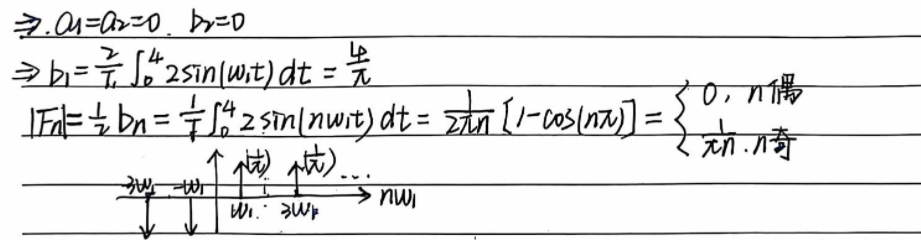 ⇒. a₁=a₂=0. b₂=0
⇒ b₁ = 2/T₁ ∫₀⁴ 2sin(w₁t) dt = 4/π
|Fn| = 1/2 bn = 1/T ∫₀⁴ 2sin(nw₁t) dt = 1/2πn [1-cos(nπ)] = { 0, n偶
1/πn. n奇
(1/π) (1/π) ...
-3w₁ -w₁ w₁. 3w₁ nw₁